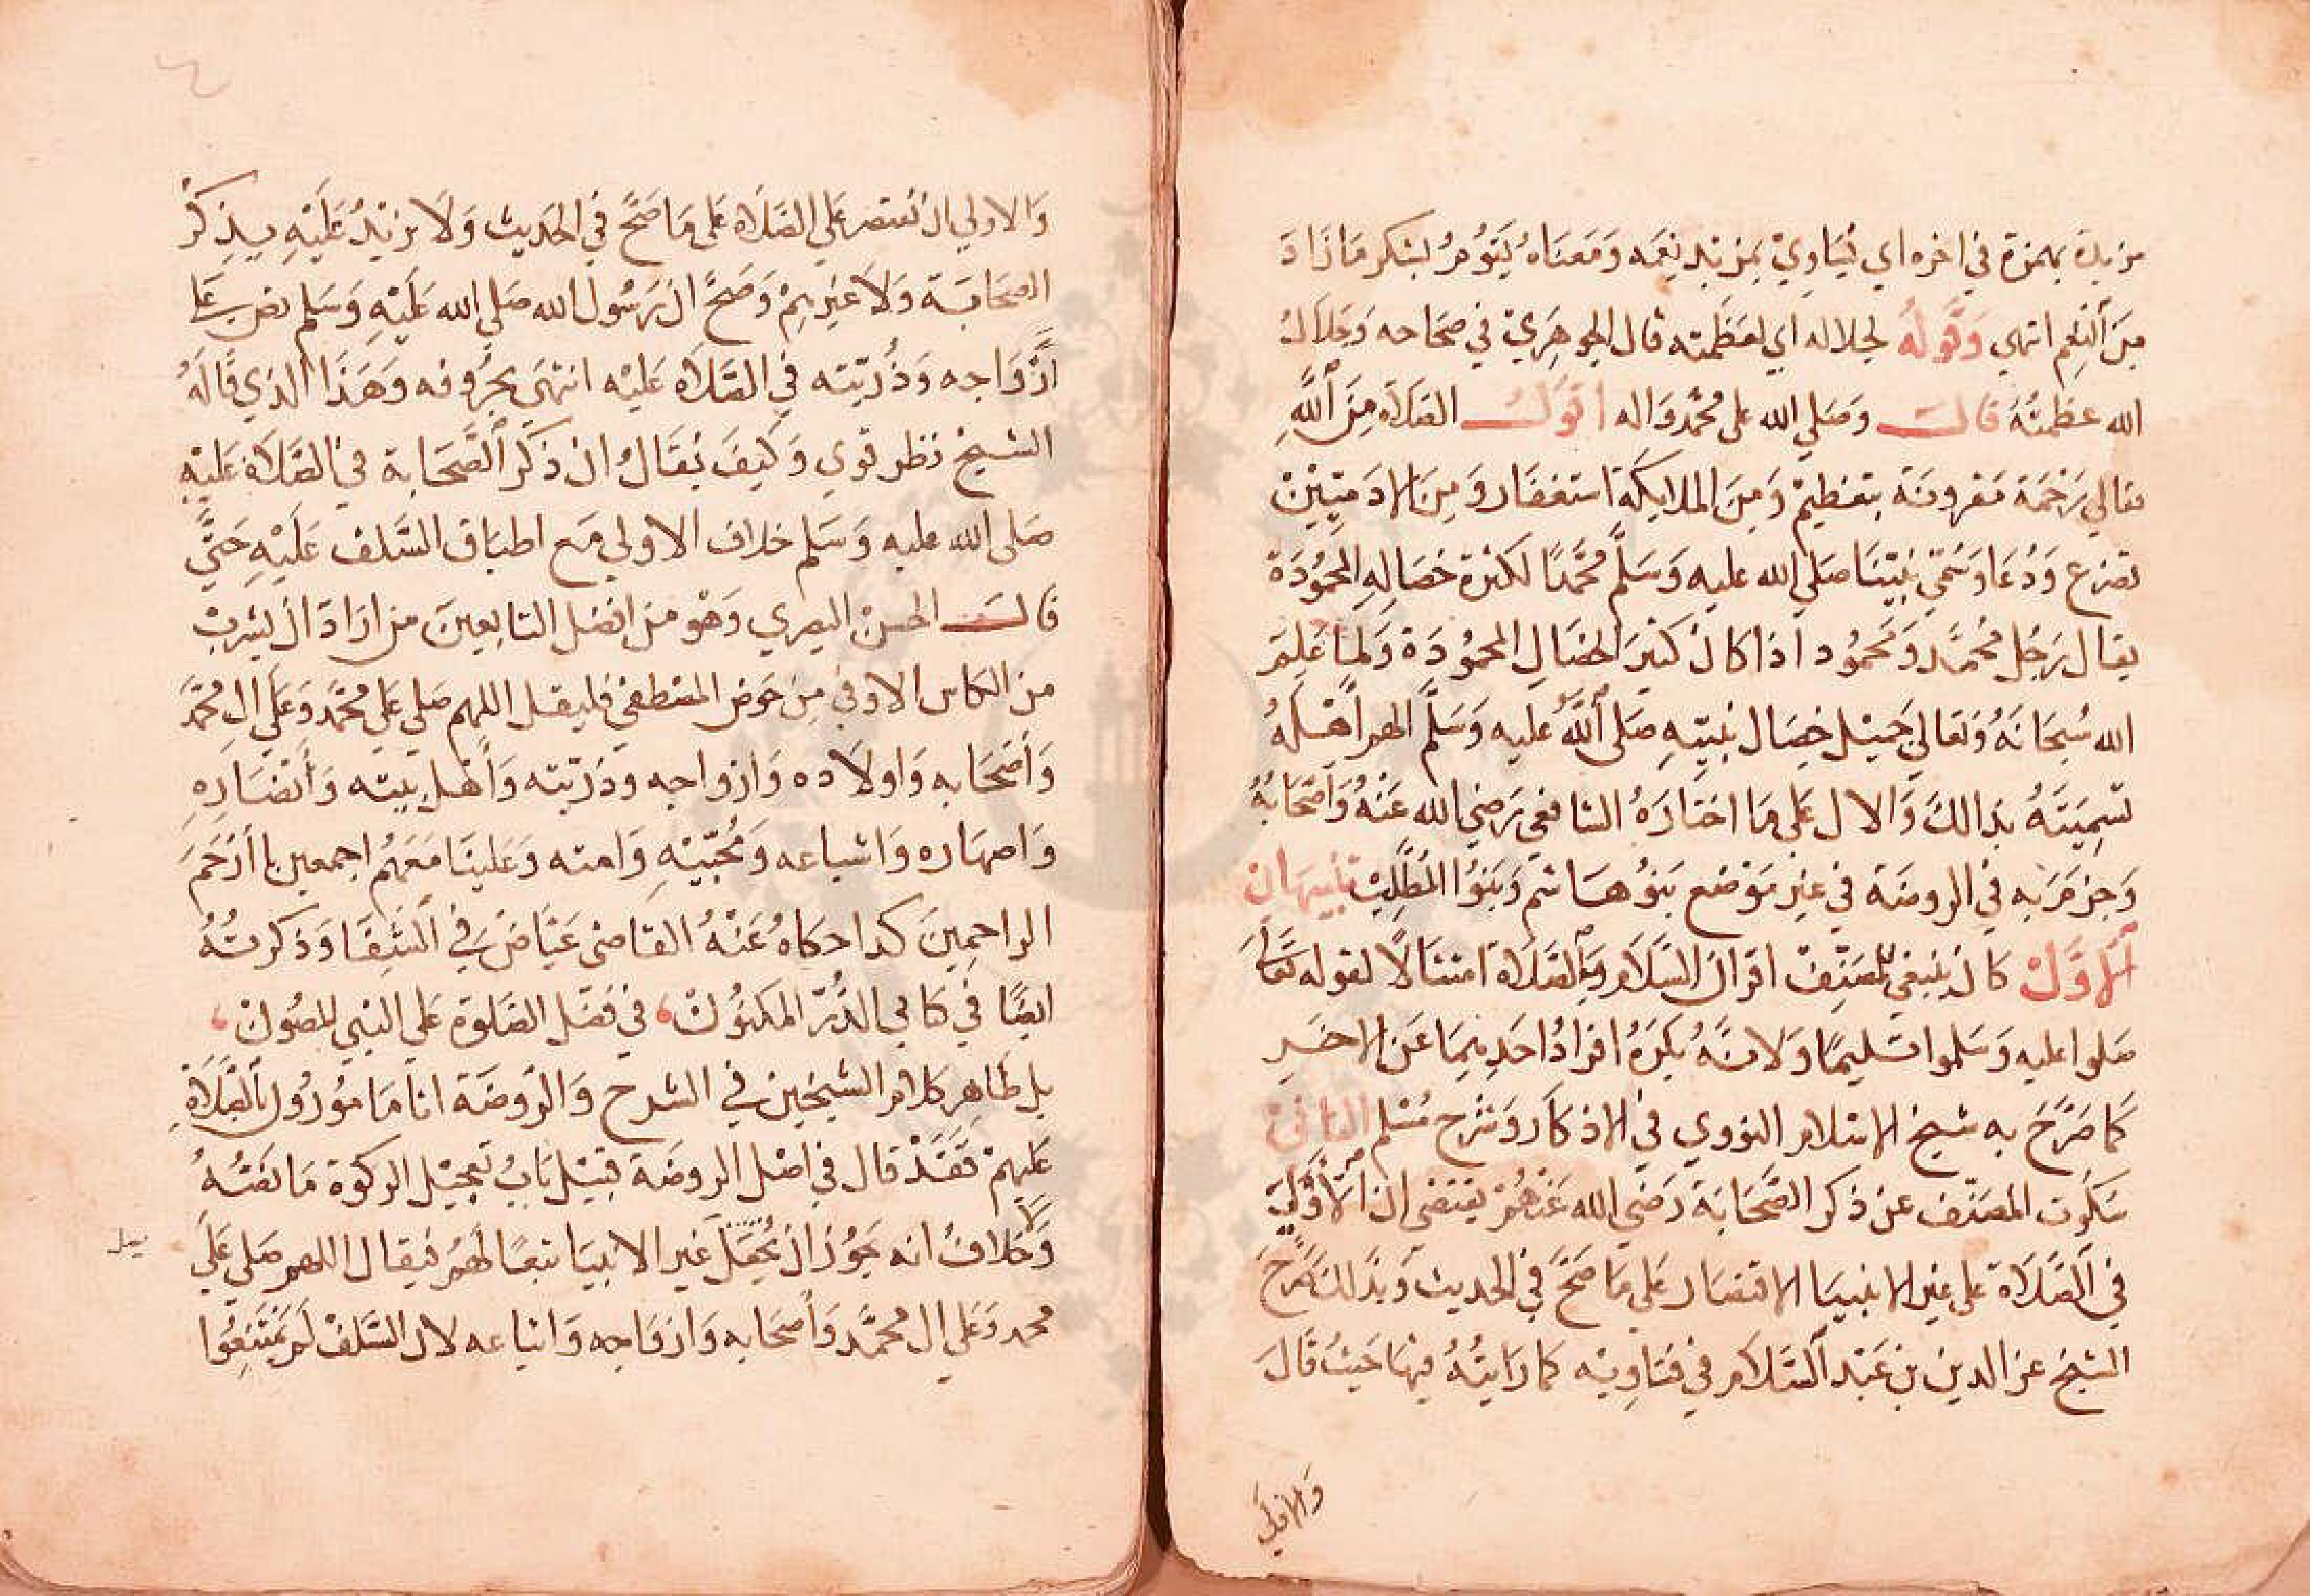 مزيدة بهمزة في اخره اي يساوي بمزيد نعمه ومعناه يقوم بشكر مازاد
من النعم انتهي وقوله لجلاله اي لعظمته قال الجوهري في صحاحه وجلال
الله عظمته قال وصلي الله على محمد واله اقول الصلاة من الله
تعالي رحمة مقرونة بتعظيم ومن الملايكة استغفار ومن الادميين
تضرع ودعا وسمي نبينا صلي الله عليه وسلم محمدا لكثرة خصاله المحمودة
يقال رجل محمد ومحمود اذا كان كثير الخصال المحمودة ولما علم
الله سبحانه وتعالي جميل خصال نبيه صلى الله عليه وسلم الهم اهله
تسميته بذالك والال على ما اختاره الشافعي رضي الله عنه واصحابه
وجزم به في الروضة في غير موضع بنو هاشم وبنوا المطلب تنبيهان
الاول كان ينبغي للمصنف اقران السلام بالصلاة امتثالا لقوله تعالى
صلوا عليه وسلموا تسليما ولانه يكره افراد احدهما عن الاخر
كما صرح به شيخ الاسلام النووي في الاذكار وشرح مسلم الثاني
سكوت المصنف عن ذكر الصحابة رضي الله عنهم يقتضي ان الاولي
في الصلاة على غير الانبيا الاقتصار على ما صح في الحديث وبذالك صرح
الشيخ عز الدين بن عبد السلام في فتاويه كما رايته فيها حيث قال
والاولي
والاولي ان نقتصر علي الصلاة على ما صح في الحديث ولا نزيد عليه بذكر
الصحابة ولا غيرهم وصح ان رسول الله صلي الله عليه وسلم نص على
ازواجه وذريته في الصلاة عليه انتهى بحروفه وهذا الذي قاله
الشيخ نظر قوي وكيف يقال ان ذكر الصحابة في الصلاة عليه
صلى الله عليه وسلم خلاف الاولي مع اطباق السلف عليه حتى
قال الحسن البصري وهو من افضل التابعين من اراد ان يشرب
من الكاس الاوفي من حوض المصطفي فليقل اللهم صلي على محمد وعلى ال محمد
واصحابه واولاده وازواجه وذريته واهل بيته وانصاره
واصهاره واشياعه ومحبيه وامته وعلينا معهم اجمعين يا ارحم
الراحمين كدا حكاه عنه القاضي عياض في الشفا وذكرته
ايضا في كتابي الدر المكنون في فضل الصلوة على النبي المصون
بل ظاهر كلام الشيخين في الشرح والروضة انا مامورون بالصلاة
عليهم فقد قال في اصل الروضة قبيل باب تعجيل الزكوة ما نصه
ولا خلاف انه يجوز ان يجعل غير الانبيا تبعا لهم فيقال اللهم صلي على
محمد وعلي ال محمد واصحابه وازواجه واتباعه لان السلف لم يمتنعوا